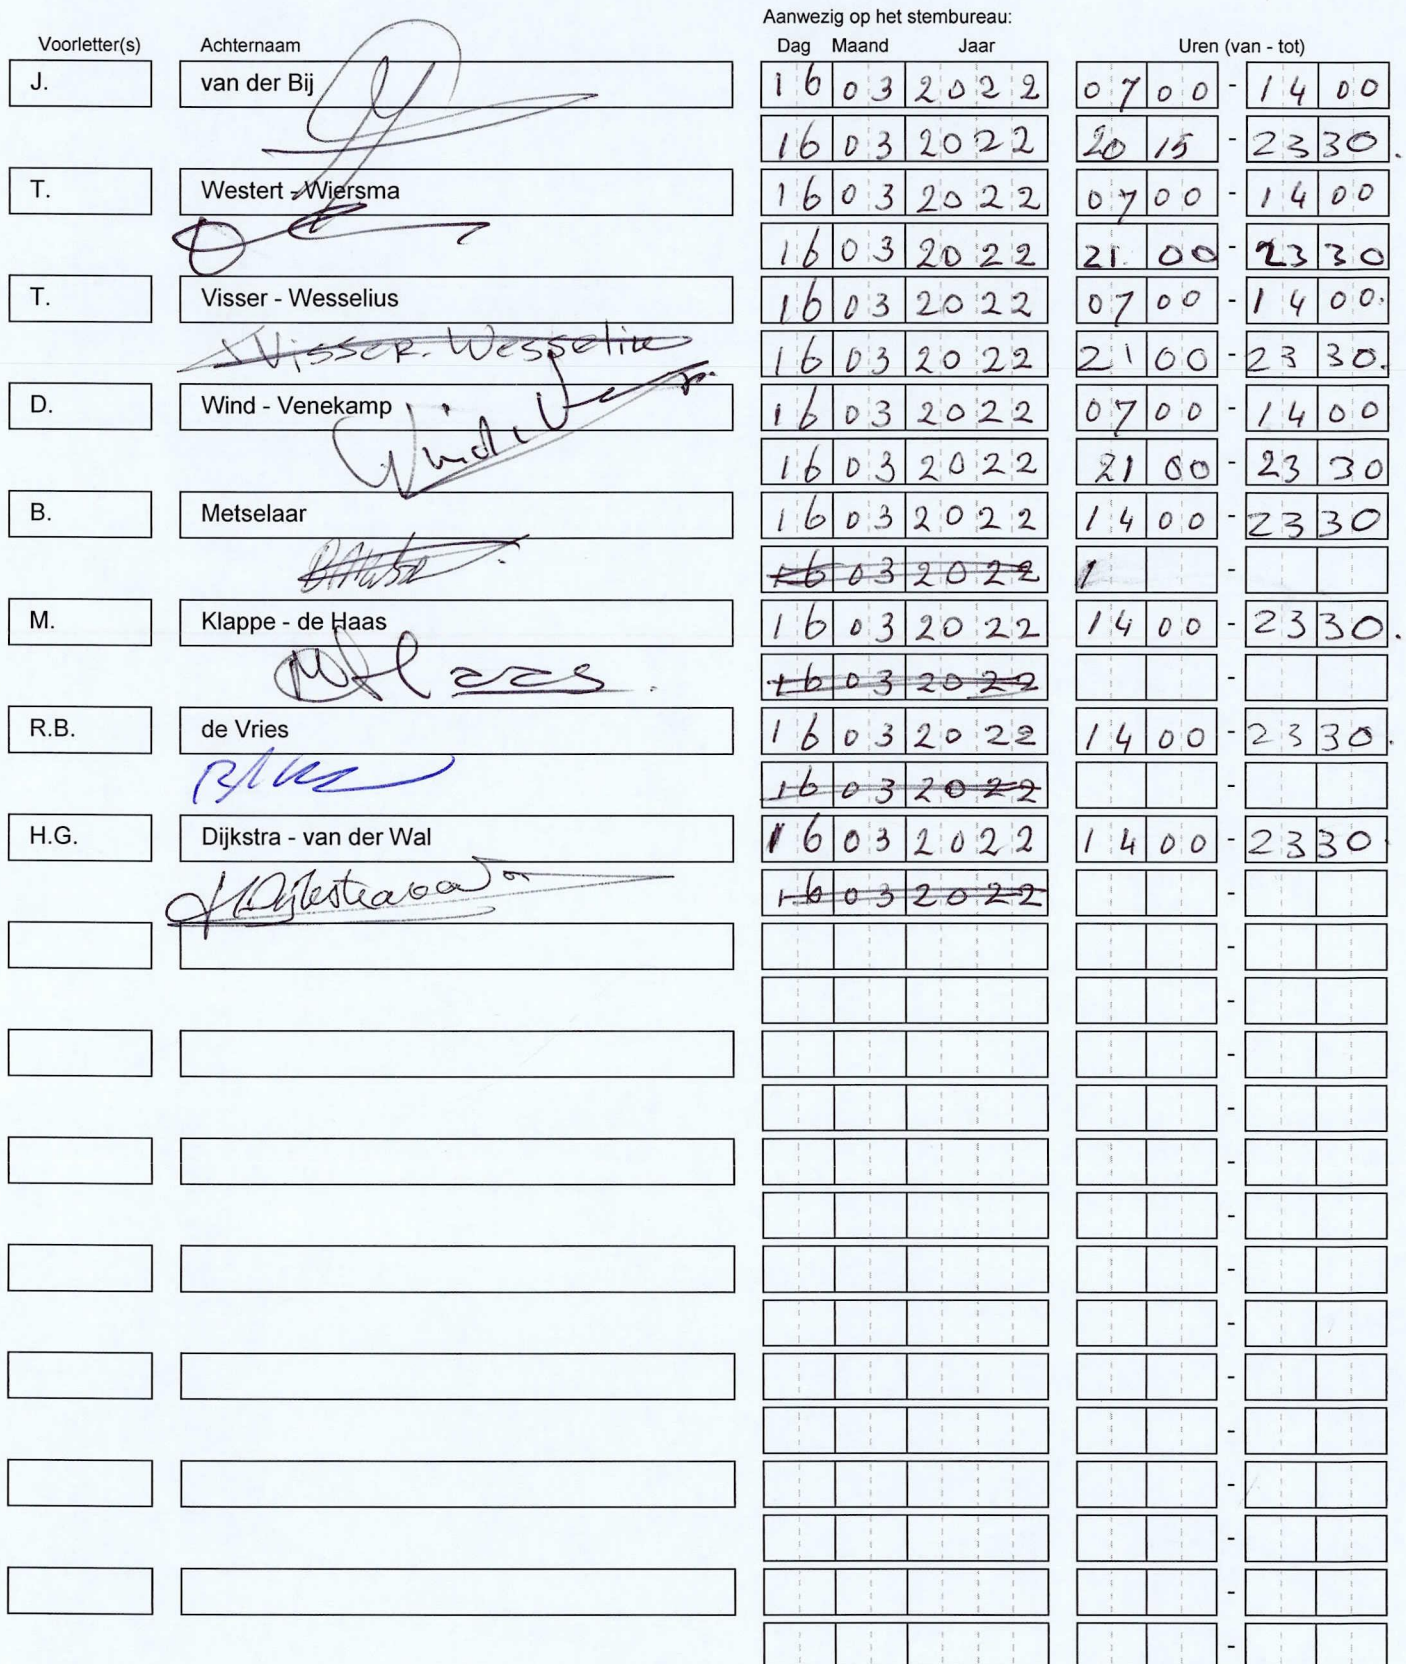 Aanwezig op het stembureau:
Voorletter(s) Achternaam Dag Maand Jaar Uren (van - tot)
J. van der Bij 16 03 2022 07 00 - 14 00
16 03 2022 20 15 - 23 30.
T. Westert - Wiersma 16 03 2022 07 00 - 14 00
16 03 2022 21 00 - 23 30
T. Visser - Wesselius 16 03 2022 07 00 - 14 00.
Visser. Wesselius 16 03 2022 21 00 - 23 30.
D. Wind - Venekamp 16 03 2022 07 00 - 14 00
16 03 2022 21 00 - 23 30
B. Metselaar 16 03 2022 14 00 - 23 30
16 03 2022 1 -
M. Klappe - de Haas 16 03 2022 14 00 - 23 30.
16 03 2022 -
R.B. de Vries 16 03 2022 14 00 - 23 30.
16 03 2022 -
H.G. Dijkstra - van der Wal 16 03 2022 14 00 - 23 30.
16 03 2022 -
-
-
-
-
-
-
-
-
-
-
-
-
-
-